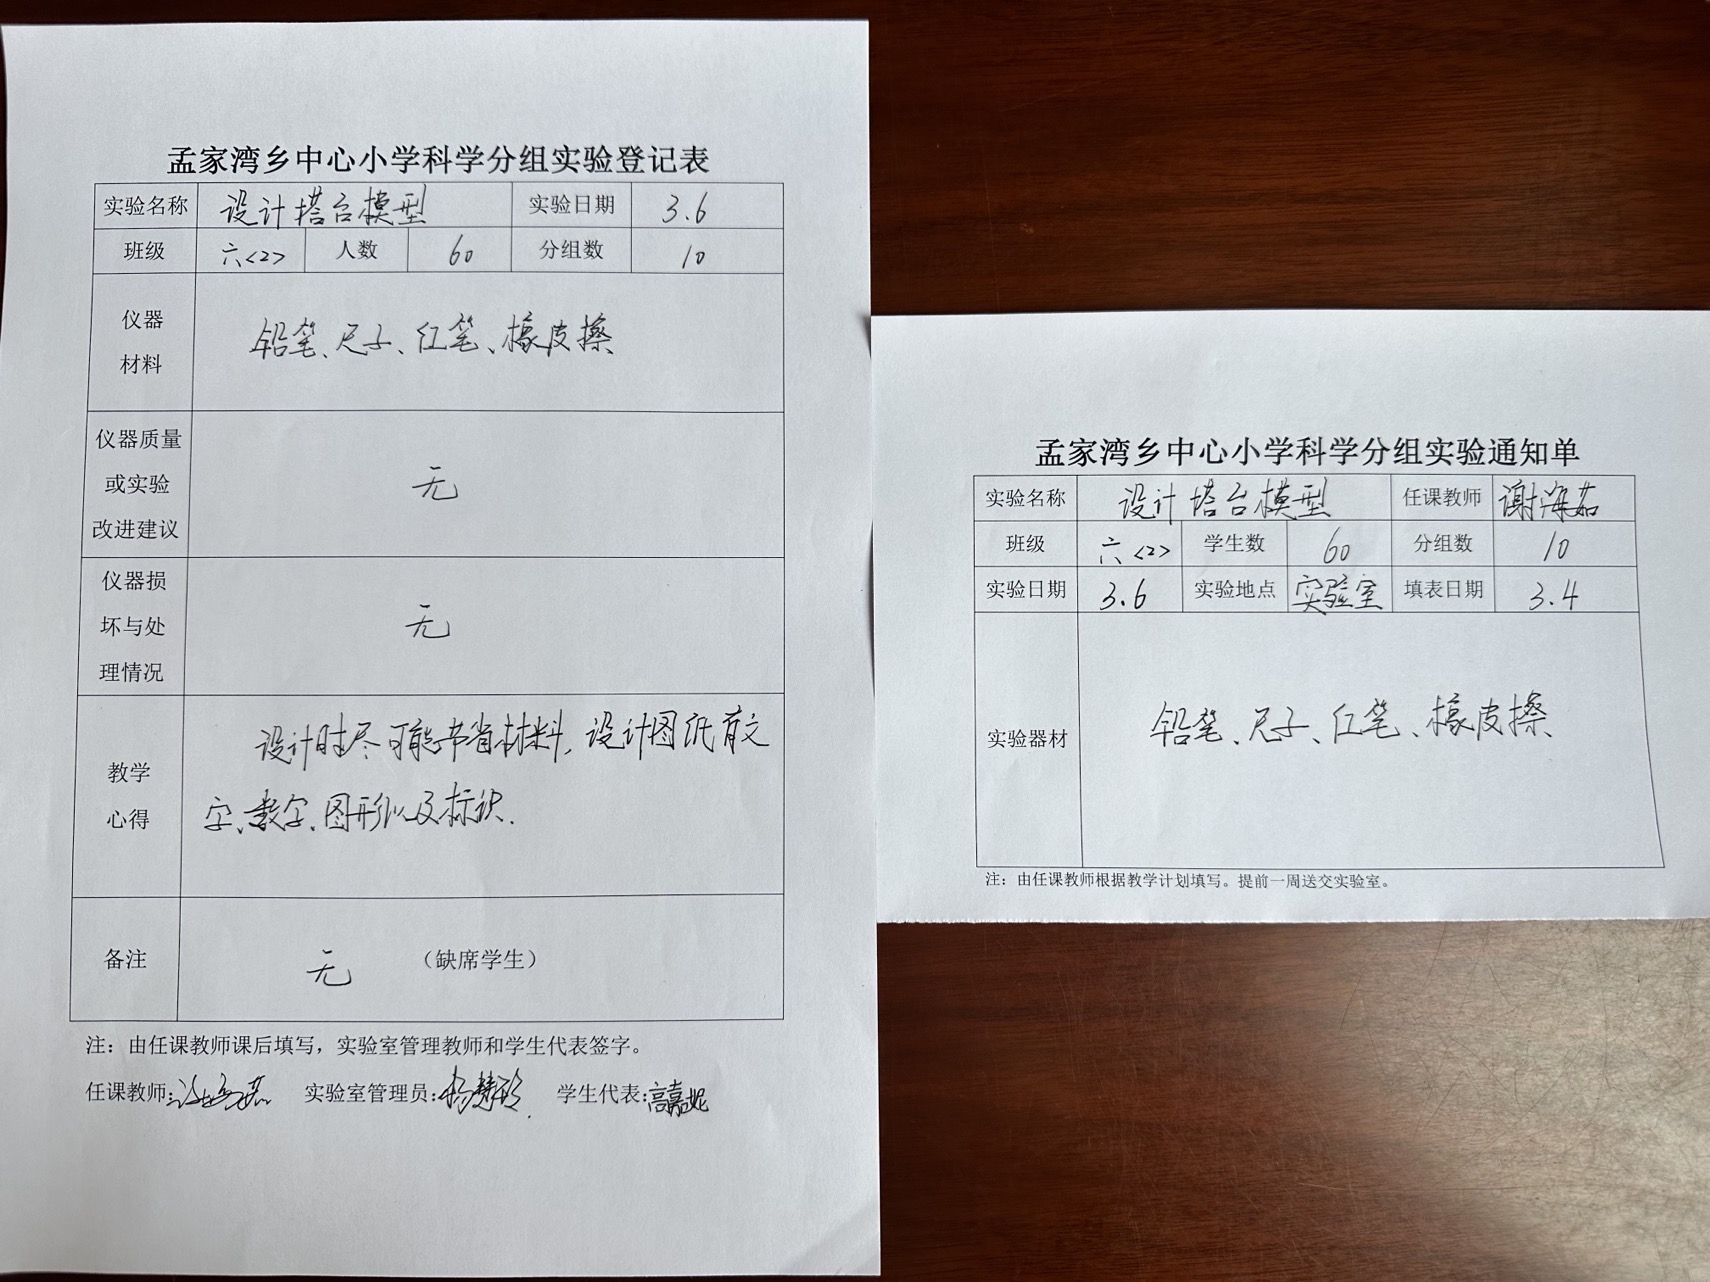 孟家湾乡中心小学科学分组实验登记表
实验名称 设计塔台模型 实验日期 3.6
班级 六<2> 人数 60 分组数 10
仪器
材料
铅笔、尺子、红笔、橡皮擦
仪器质量
或实验
改进建议
无
仪器损
坏与处
理情况
无
教学
心得
设计时尽可能节省材料，设计图纸有文
字、数字、图形以及标识.
备注 无 （缺席学生）
注：由任课教师课后填写，实验室管理教师和学生代表签字。
任课教师: 谢海茹 实验室管理员: 学生代表: 高嘉妮
孟家湾乡中心小学科学分组实验通知单
实验名称 设计塔台模型 任课教师 谢海茹
班级 六<2> 学生数 60 分组数 10
实验日期 3.6 实验地点 实验室 填表日期 3.4
实验器材 铅笔、尺子、红笔、橡皮擦
注：由任课教师根据教学计划填写。提前一周送交实验室。